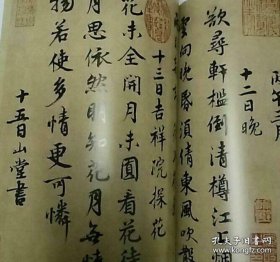 丙午三月
十二日晚
欲尋軒檻倒清樽江上烟
雲向晚昏須倩東風吹散
十三日吉祥院探花
花未全開月未圓看花待
月思依然明知花月無情
物若使多情更可憐
十五日山堂書
孔夫子旧书网